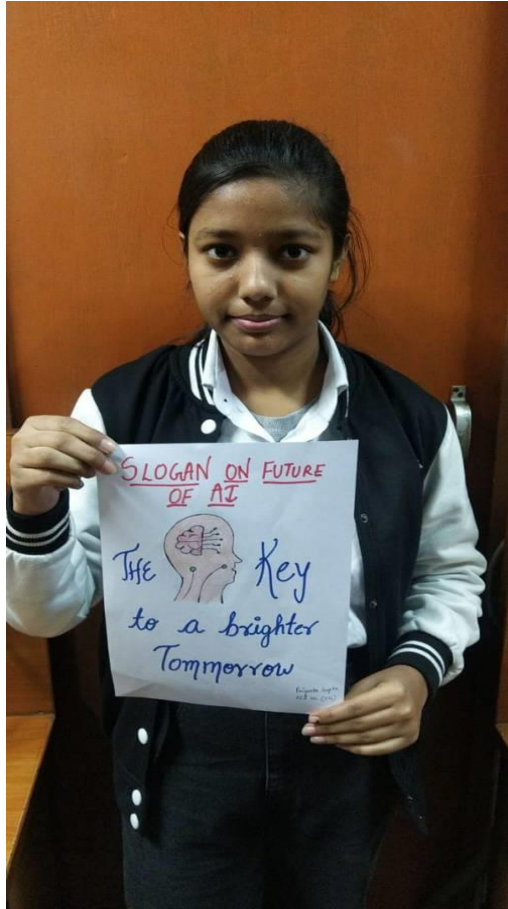 SLOGAN ON FUTURE
OF AI
THE Key
to a brighter
Tommorrow